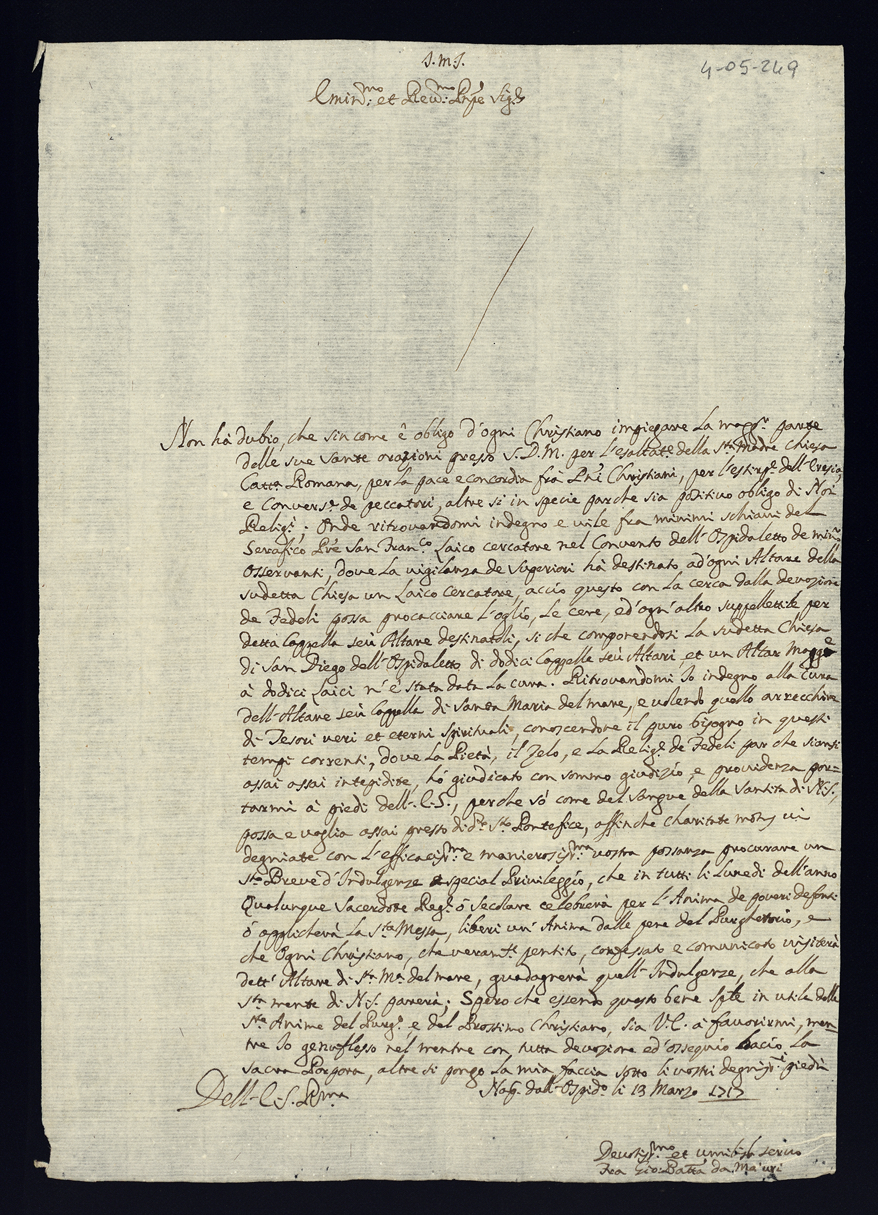 J.M.J.
4-05-249
Emin.mo et Rev.mo Prpe Sig.r
Non hà dubio, che sincome è obligo d'ogni Christiano impiegare la magg.r parte
delle sue sante orazioni presso S.D.M. per l'esaltat.e della S.ta Madre Chiesa
Catt.a Romana, per la pace e concordia fra P.npi Christiani, per l'estirp.e dell'Eresia,
e Convers.e de peccatori, altre sì in specie par che sia positivo obligo di Noi
Relig.i; Onde ritrovandomi indegno e vile fra minimi schiavi del
Serafico P.re San Fran.co Laico cercatore nel Convento dell'Ospidaletto de min.ri
Osservanti, dove la vigilanza de Superiori hà destinato ad'ogni Altare della
sudetta Chiesa un Laico Cercatore, acciò questo con la cerca dalla devozione
de Fedeli possa procacciare l'oglio, le cere, ed'ogn'altro suppellettile per
detta Cappella seù Altare destinatoli, si che componendosi la sudetta Chiesa
di San Diego dell'Ospidaletto di dodici Cappelle seù Altari et un Altar Maggre
à dodici Laici n'è stata data la cura. Ritrovandomi Io indegno alla cura
dell'Altare seù Cappella di Santa Maria del mare, e volendo quello arrecchire
di Tesori veri et eterni spirituali conoscendone il puro bisogno in questi
tempi correnti, dove la Pietà, il zelo, e la Relig.e de Fedeli par che siansi
assai assai intepidite, hò giudicato con sommo giudizio, e providenza por=
tarmi à piedi dell'E.S., perche sò come del sangue della Santità di N.S.,
possa e voglia assai presso di d.to S.to Pontefice, affinche charitate motus vi
degniate con l'efficaciss.ma e manierosiss.ma vostra possanza procurare un
S.to Breve d'Indulgenze e special Privileggio, che in tutti li Lunedì dell'anno
Qualunque Sacerdote Reg.e ò Secolare celebrerà per l'Anima de poveri defonti
ò applicherà la S.ta Messa, liberi un'Anima dalle pene del Purghatorio, e
che Ogni Christiano, che veram.te pentito, confessato e comunicato visiterà
dett'Altare di S.ta M.a del mare, guadagnerà quell'Indulgenze, che alla
S.ta mente di N.S. parerà; Spero che essendo questo bene sp.le in utile delle
S.te Anime del Purg.o e del Prossimo Christiano, sia V.E. à favorirmi, men=
tre Io genuflesso nel mentre con tutta devozione ed'ossequio bacio la
sacra Porpora, altre si pongo la mia faccia sotto li vostri degniss.i piedi
Dell'E.S. R.ma
Nap. dall'Ospid.o li 13 Marzo 1717
Devotiss.mo et umiliss.o servo
Fra Gio: Batta da Maiuri